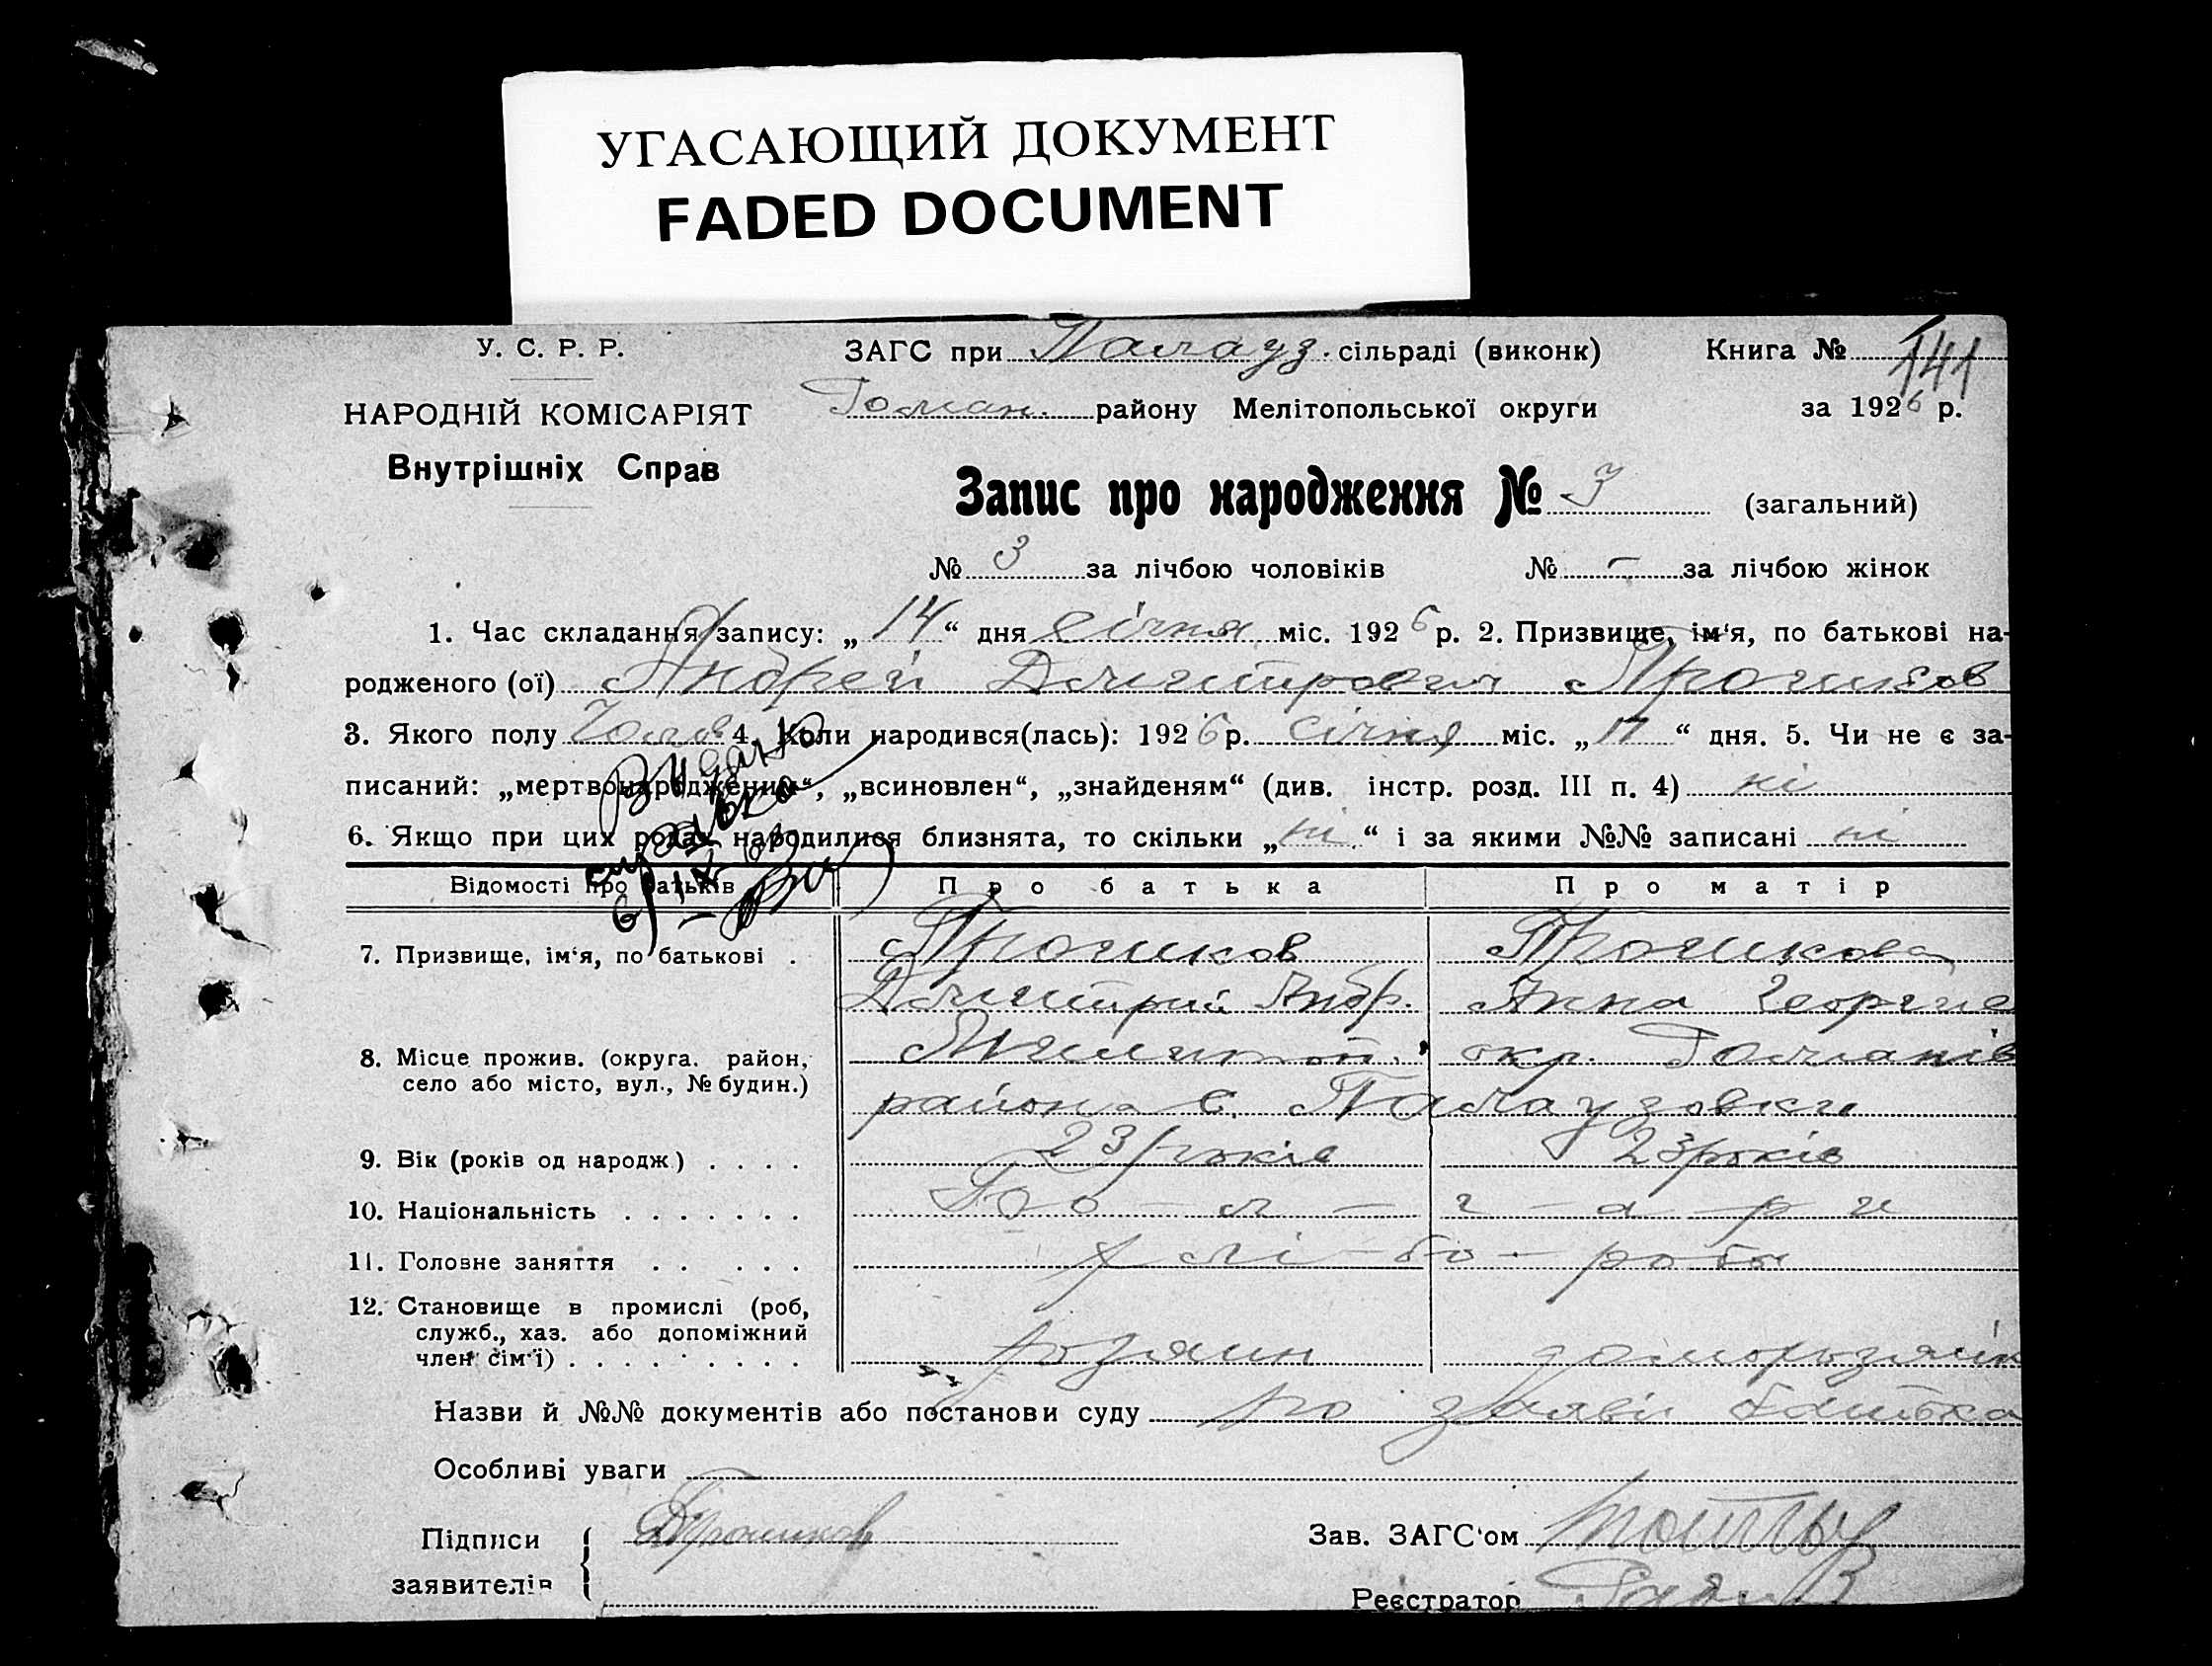 УГАСАЮЩИЙ ДОКУМЕНТ
FADED DOCUMENT
У. С. Р. Р.
НАРОДНІЙ КОМІСАРІЯТ
Внутрішніх Справ
ЗАГС при Палауз. сільраді (виконк)
Книга №
141
район​у Мелітопольської округи
за 1926 р.
Запис про народження № 3 (загальний)
№ 3 за лічбою чоловіків № – за лічбою жінок
1. Час складання запису: „ 14 “ дня січня міс. 1926 р. 2. Призвище, ім'я, по батькові на-
родженого (ої) Андрей Дмитрович
3. Якого полу Чолов 4. Коли народився(лась): 1926 р. січня міс. „ 11 “ дня. 5. Чи не є за-
писаний: „мертвонародженим“, „всиновлен“, „знайденям“ (див. інстр. розд. III п. 4) ні
6. Якщо при цих родах народилися близнята, то скільки „ ні “ і за якими №№ записані ні
Відомості про батьків Про батька Про матір
7. Призвище, ім'я, по батькові .
Дмитрий Андр. Анна Георгие
8. Місце прожив. (округа, район,
село або місто, вул., № будин.)
окр.
района с. Палаузовки
9. Вік (років од народж.) . . . . 23 років 23 років
10. Національність . . . . . . . Бо - л - г - а - р и
11. Головне заняття . . . . . хлі - бо - роби
12. Становище в промислі (роб,
служб., хаз. або допоміжний
член сім'ї) . . . . . . . . . хозяин
Назви й №№ документів або постанови суду по заяви батька
Особливі уваги
Підписи
заявителів
Зав. ЗАГС'ом
Реєстратор